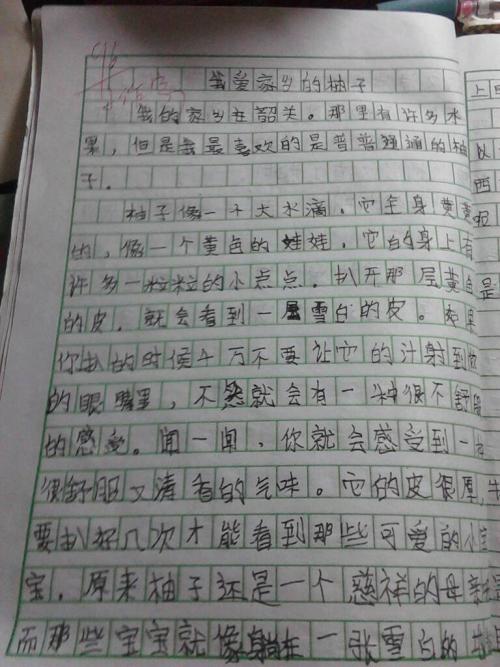 我爱家乡的柚子
我的家乡在韶关。那里有许多水
果，但是我最喜欢的是普普通通的柚
子。
柚子像一个大水滴，它全身黄黄
的，像一个黄色的娃娃，它的身上有
许多一粒粒的小点点。扒开那层黄色
的皮，就会看到一层雪白的皮。如果
你扒的时候千万不要让它的汁射到你
的眼睛里，不然就会有一种很不舒服
的感受。闻一闻，你就会感受到一种
很舒服又清香的气味。它的皮很厚，
要扒好几次才能看到那些可爱的小宝
宝，原来柚子还是一个慈祥的母亲
而那些宝宝就像躺在一张雪白的
上
以
西
是